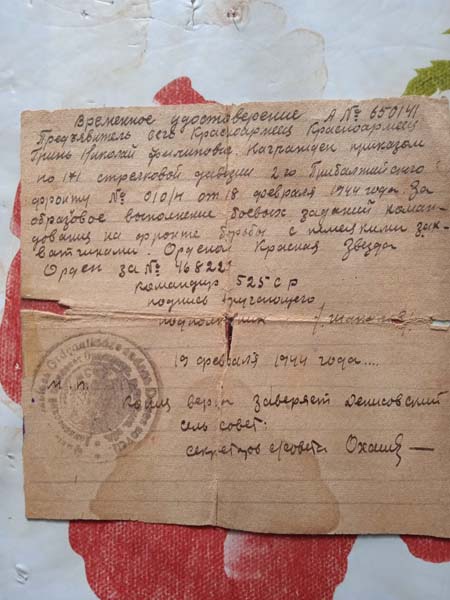 Временное удостоверение А № 650141
Предъявитель сего Красноармеец Красноармеец
Гринь Николай Филипович Награжден приказом
по 171 стрелковой дивизии 2го Прибалтийского
фронту № 010/н от 18 февраля 1944 года За
образовое выполнение боевых заданий коман-
дования на фронте борьбы с немецкими зах-
ватчиками. Орденом Красная Звезда
Орден за № 468221
командир 525 СР
подпись
подполковник
19 февраля 1944 года....
м. п.
Копия верна заверяет Денисовский
сель совет:
секретарь с/совета